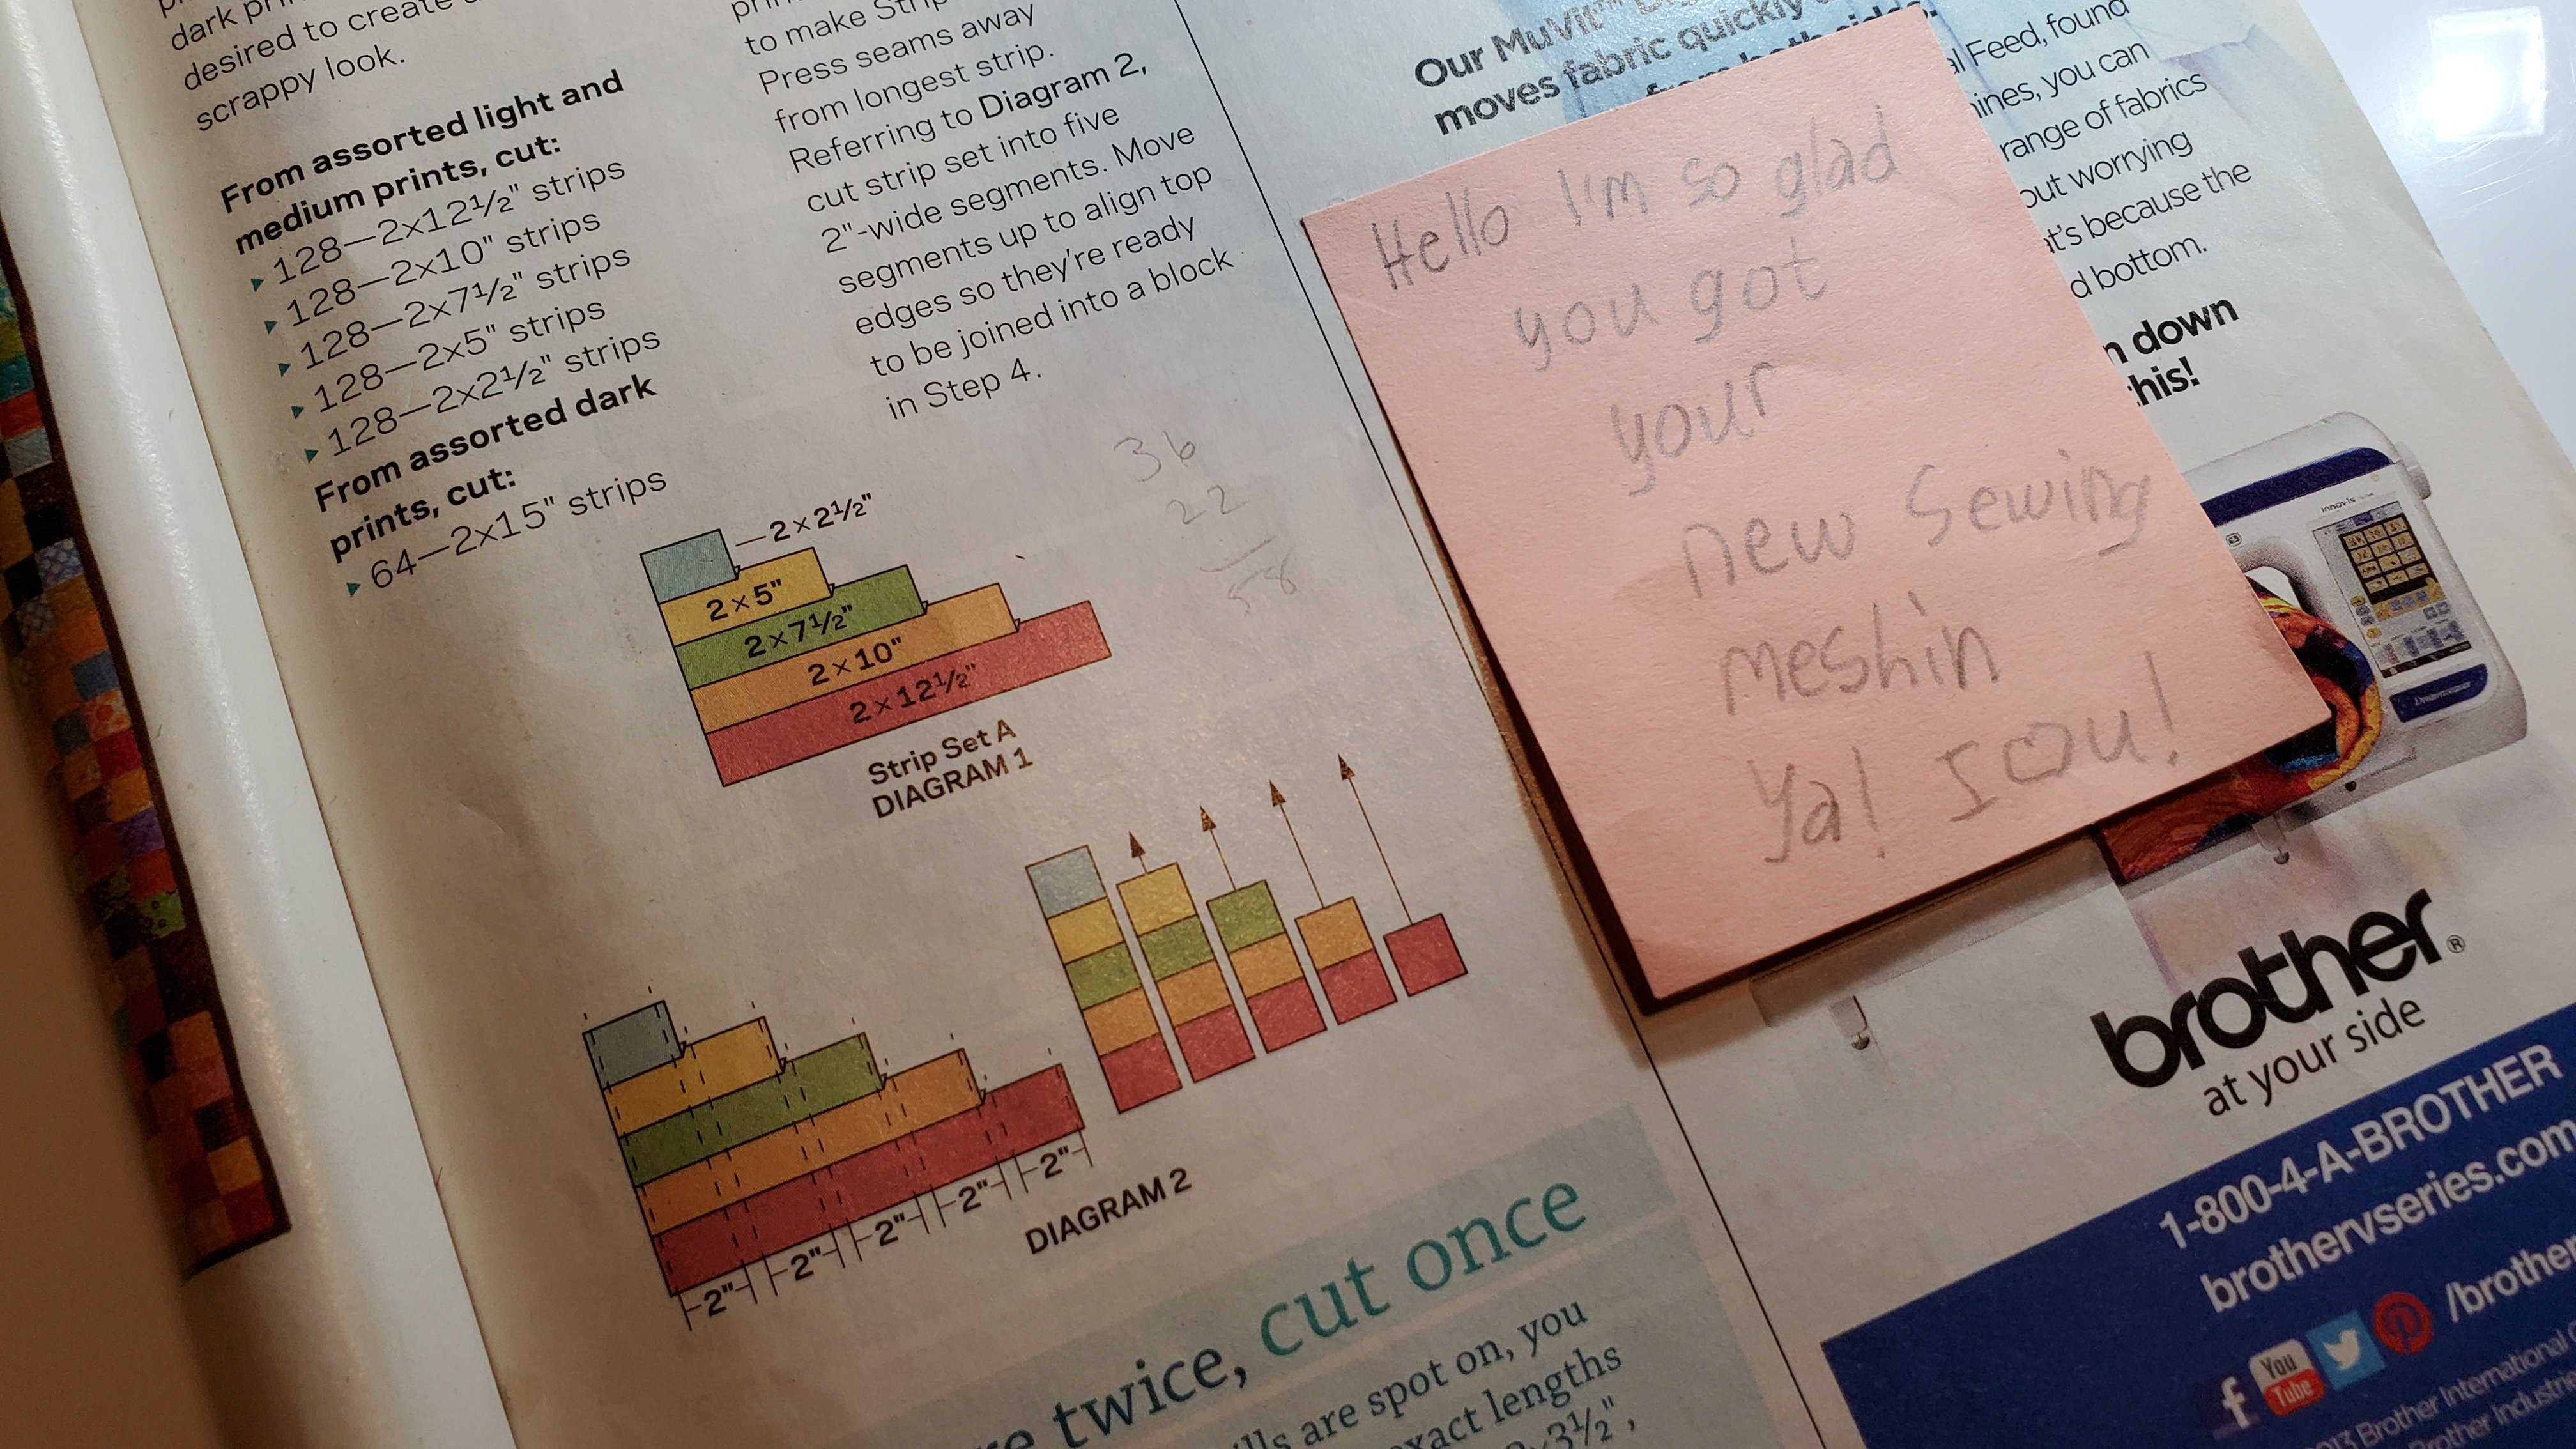 dark
desired to create
scrappy look.
From assorted light and
medium prints, cut:
▸ 128—2×12½" strips
▸ 128—2×10" strips
▸ 128—2×7½" strips
▸ 128—2×5" strips
▸ 128—2×2½" strips
From assorted dark
prints, cut:
▸ 64—2×15" strips
to make Strip
Press seams away
from longest strip.
Referring to Diagram 2,
cut strip set into five
2"-wide segments. Move
segments up to align top
edges so they're ready
to be joined into a block
in Step 4.
36
22
58
2×2½"
2×5"
2×7½"
2×10"
2×12½"
Strip Set A
DIAGRAM 1
2" 2" 2" 2" 2"
DIAGRAM 2
twice, cut once
are spot on, you
exact lengths
3½",
Our MuVit™
moves fabric quickly
from both sides.
Feed, found
you can
range of fabrics
worrying
because the
bottom.
down
this!
Hello I'm so glad
you got
your
new Sewing
meshin
Ya! I ♡ u!
innovis
Dreamweaver
brother®
at your side
1-800-4-A-BROTHER
brothervseries.com
f You Tube /brother
Brother International
Brother Industries